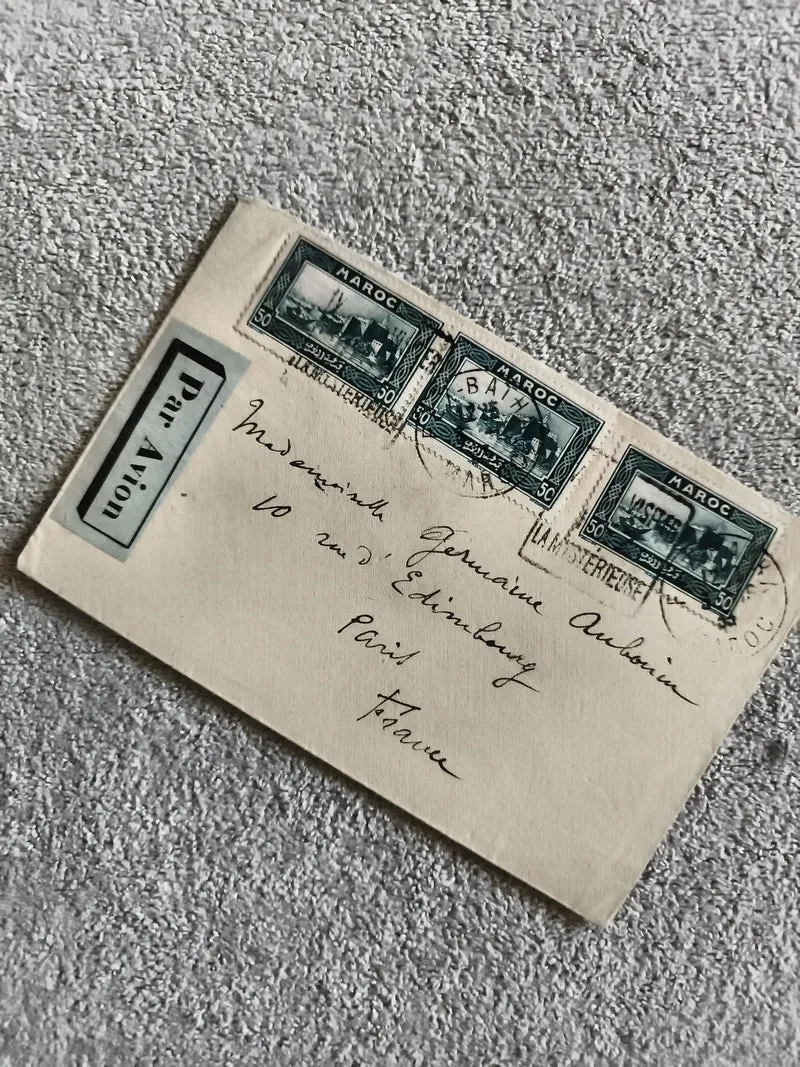 MAROC
50 50
LA MYSTERIEUSE
MAROC
50 50
MAR
MAROC
50 50
VISITEZ
LA MYSTERIEUSE
Par Avion
Mademoiselle Germaine Aubouin
10 rue d'Edimbourg
Paris
France